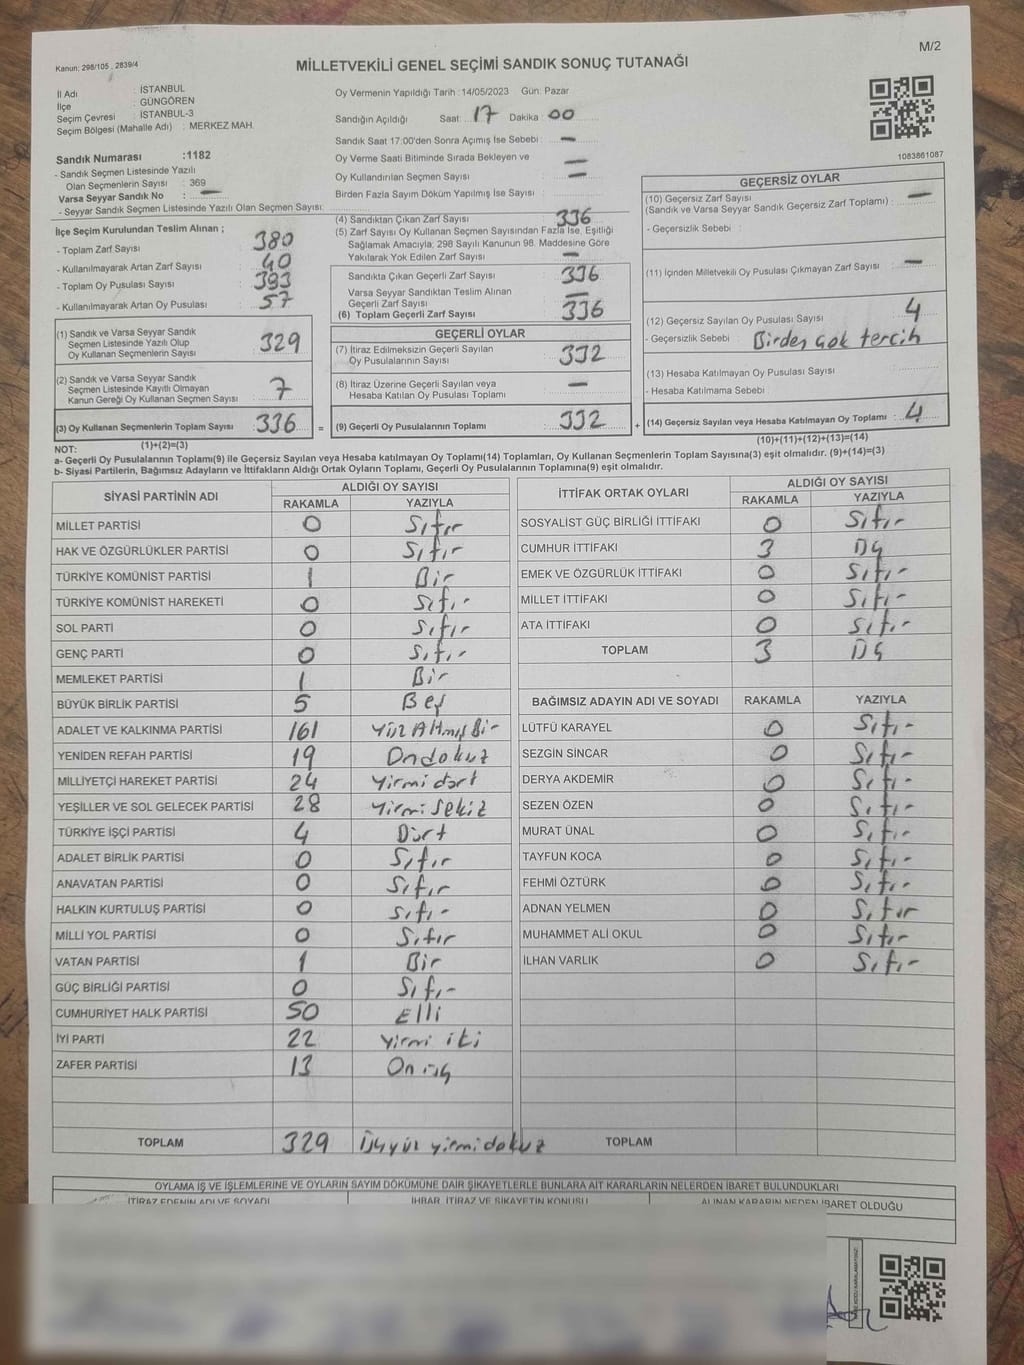 M/2
Kanun: 298/105 , 2839/4
MİLLETVEKİLİ GENEL SEÇİMİ SANDIK SONUÇ TUTANAĞI
İl Adı : İSTANBUL
İlçe : GÜNGÖREN
Seçim Çevresi : İSTANBUL-3
Seçim Bölgesi (Mahalle Adı) : MERKEZ MAH.
Oy Vermenin Yapıldığı Tarih : 14/05/2023 Gün: Pazar
Sandığın Açıldığı Saat: 17 Dakika : 00
Sandık Saat 17:00'den Sonra Açımış İse Sebebi : —
Oy Verme Saati Bitiminde Sırada Bekleyen ve —
Oy Kullandırılan Seçmen Sayısı : —
Birden Fazla Sayım Döküm Yapılmış İse Sayısı :
1083861087
Sandık Numarası :1182
- Sandık Seçmen Listesinde Yazılı
Olan Seçmenlerin Sayısı : 369
Varsa Seyyar Sandık No : —
- Seyyar Sandık Seçmen Listesinde Yazılı Olan Seçmen Sayısı:
İlçe Seçim Kurulundan Teslim Alınan ;
- Toplam Zarf Sayısı : 380
- Kullanılmayarak Artan Zarf Sayısı : 40
- Toplam Oy Pusulası Sayısı : 393
- Kullanılmayarak Artan Oy Pusulası : 57
(1) Sandık ve Varsa Seyyar Sandık
Seçmen Listesinde Yazılı Olup
Oy Kullanan Seçmenlerin Sayısı : 329
(2) Sandık ve Varsa Seyyar Sandık
Seçmen Listesinde Kayıtlı Olmayan
Kanun Gereği Oy Kullanan Seçmen Sayısı : 7
(3) Oy Kullanan Seçmenlerin Toplam Sayısı : 336 =
(1)+(2)=(3)
(4) Sandıktan Çıkan Zarf Sayısı : 336
(5) Zarf Sayısı Oy Kullanan Seçmen Sayısından Fazla İse, Eşitliği
Sağlamak Amacıyla; 298 Sayılı Kanunun 98. Maddesine Göre
Yakılarak Yok Edilen Zarf Sayısı : —
Sandıkta Çıkan Geçerli Zarf Sayısı : 336
Varsa Seyyar Sandıktan Teslim Alınan
Geçerli Zarf Sayısı : —
(6) Toplam Geçerli Zarf Sayısı : 336
GEÇERLİ OYLAR
(7) İtiraz Edilmeksizin Geçerli Sayılan
Oy Pusulalarının Sayısı : 332
(8) İtiraz Üzerine Geçerli Sayılan veya
Hesaba Katılan Oy Pusulası Toplamı : —
(9) Geçerli Oy Pusulalarının Toplamı : 332 +
GEÇERSİZ OYLAR
(10) Geçersiz Zarf Sayısı
(Sandık ve Varsa Seyyar Sandık Geçersiz Zarf Toplamı) : —
- Geçersizlik Sebebi :
(11) İçinden Milletvekili Oy Pusulası Çıkmayan Zarf Sayısı : —
(12) Geçersiz Sayılan Oy Pusulası Sayısı : 4
- Geçersizlik Sebebi : Birden Çok tercih
(13) Hesaba Katılmayan Oy Pusulası Sayısı :
- Hesaba Katılmama Sebebi :
(14) Geçersiz Sayılan veya Hesaba Katılmayan Oy Toplamı : 4
(10)+(11)+(12)+(13)=(14)
NOT:
a- Geçerli Oy Pusulalarının Toplamı(9) ile Geçersiz Sayılan veya Hesaba Katılmayan Oy Toplamı(14) Toplamları, Oy Kullanan Seçmenlerin Toplam Sayısına(3) eşit olmalıdır. (9)+(14)=(3)
b- Siyasi Partilerin, Bağımsız Adayların ve İttifakların Aldığı Ortak Oyların Toplamı, Geçerli Oy Pusulalarının Toplamına(9) eşit olmalıdır.
SİYASİ PARTİNİN ADI ALDIĞI OY SAYISI
RAKAMLA YAZIYLA
MİLLET PARTİSİ 0 Sıfır
HAK VE ÖZGÜRLÜKLER PARTİSİ 0 Sıfır
TÜRKİYE KOMÜNİST PARTİSİ 1 Bir
TÜRKİYE KOMÜNİST HAREKETİ 0 Sıfır
SOL PARTİ 0 Sıfır
GENÇ PARTİ 0 Sıfır
MEMLEKET PARTİSİ 1 Bir
BÜYÜK BİRLİK PARTİSİ 5 Beş
ADALET VE KALKINMA PARTİSİ 161 Yüz Altmış Bir
YENİDEN REFAH PARTİSİ 19 Ondokuz
MİLLİYETÇİ HAREKET PARTİSİ 24 Yirmi dört
YEŞİLLER VE SOL GELECEK PARTİSİ 28 Yirmi sekiz
TÜRKİYE İŞÇİ PARTİSİ 4 Dört
ADALET BİRLİK PARTİSİ 0 Sıfır
ANAVATAN PARTİSİ 0 Sıfır
HALKIN KURTULUŞ PARTİSİ 0 Sıfır
MİLLİ YOL PARTİSİ 0 Sıfır
VATAN PARTİSİ 1 Bir
GÜÇ BİRLİĞİ PARTİSİ 0 Sıfır
CUMHURİYET HALK PARTİSİ 50 Elli
İYİ PARTİ 22 Yirmi iki
ZAFER PARTİSİ 13 On üç
TOPLAM 329 Üçyüz yirmi dokuz
İTTİFAK ORTAK OYLARI ALDIĞI OY SAYISI
RAKAMLA YAZIYLA
SOSYALİST GÜÇ BİRLİĞİ İTTİFAKI 0 Sıfır
CUMHUR İTTİFAKI 3 Üç
EMEK VE ÖZGÜRLÜK İTTİFAKI 0 Sıfır
MİLLET İTTİFAKI 0 Sıfır
ATA İTTİFAKI 0 Sıfır
TOPLAM 3 Üç
BAĞIMSIZ ADAYIN ADI VE SOYADI RAKAMLA YAZIYLA
LÜTFÜ KARAYEL 0 Sıfır
SEZGİN SİNCAR 0 Sıfır
DERYA AKDEMİR 0 Sıfır
SEZEN ÖZEN 0 Sıfır
MURAT ÜNAL 0 Sıfır
TAYFUN KOCA 0 Sıfır
FEHMİ ÖZTÜRK 0 Sıfır
ADNAN YELMEN 0 Sıfır
MUHAMMET ALİ OKUL 0 Sıfır
İLHAN VARLIK 0 Sıfır
TOPLAM
OYLAMA İŞ VE İŞLEMLERİNE VE OYLARIN SAYIM DÖKÜMÜNE DAİR ŞİKAYETLERLE BUNLARA AİT KARARLARIN NELERDEN İBARET BULUNDUKLARI
İTİRAZ EDENİN ADI VE SOYADI İHBAR, İTİRAZ VE ŞİKAYETİN KONUSU ALINAN KARARIN NEDEN İBARET OLDUĞU